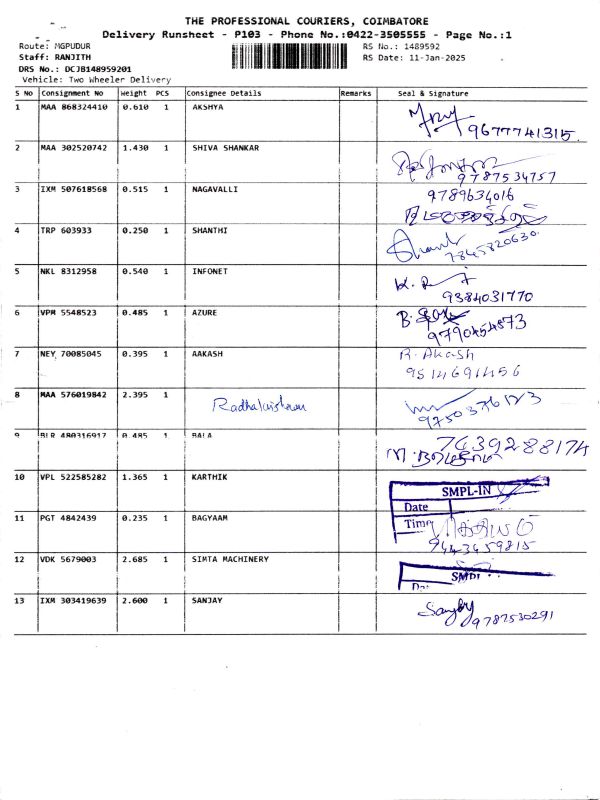 THE PROFESSIONAL COURIERS, COIMBATORE
Delivery Runsheet - P103 - Phone No.:0422-3505555 - Page No.:1
Route: MGPUDUR RS No.: 1489592
Staff: RANJITH RS Date: 11-Jan-2025
DRS No.: DCJB148959201
Vehicle: Two Wheeler Delivery
S No Consignment No Weight PCS Consignee Details Remarks Seal & Signature
1 MAA 868324410 0.610 1 AKSHYA
9677741315
2 MAA 302520742 1.430 1 SHIVA SHANKAR
9787534757
3 IXM 507618568 0.515 1 NAGAVALLI 9789634016
4 TRP 603933 0.250 1 SHANTHI Shanthi
7845820630
5 NKL 8312958 0.540 1 INFONET
9384031770
6 VPM 5548523 0.485 1 AZURE
9790454873
7 NEY 70085045 0.395 1 AAKASH R. Akash
9514691456
8 MAA 576019842 2.395 1 Radhakrishnan
9 BLR 480316917 0.485 1 BALA 7639288174
10 VPL 522585282 1.365 1 KARTHIK
SMPL-IN
Date
11 PGT 4842439 0.235 1 BAGYAAM Time
9443459815
12 VDK 5679003 2.685 1 SIMTA MACHINERY
13 IXM 303419639 2.600 1 SANJAY Sanjay
9787530291